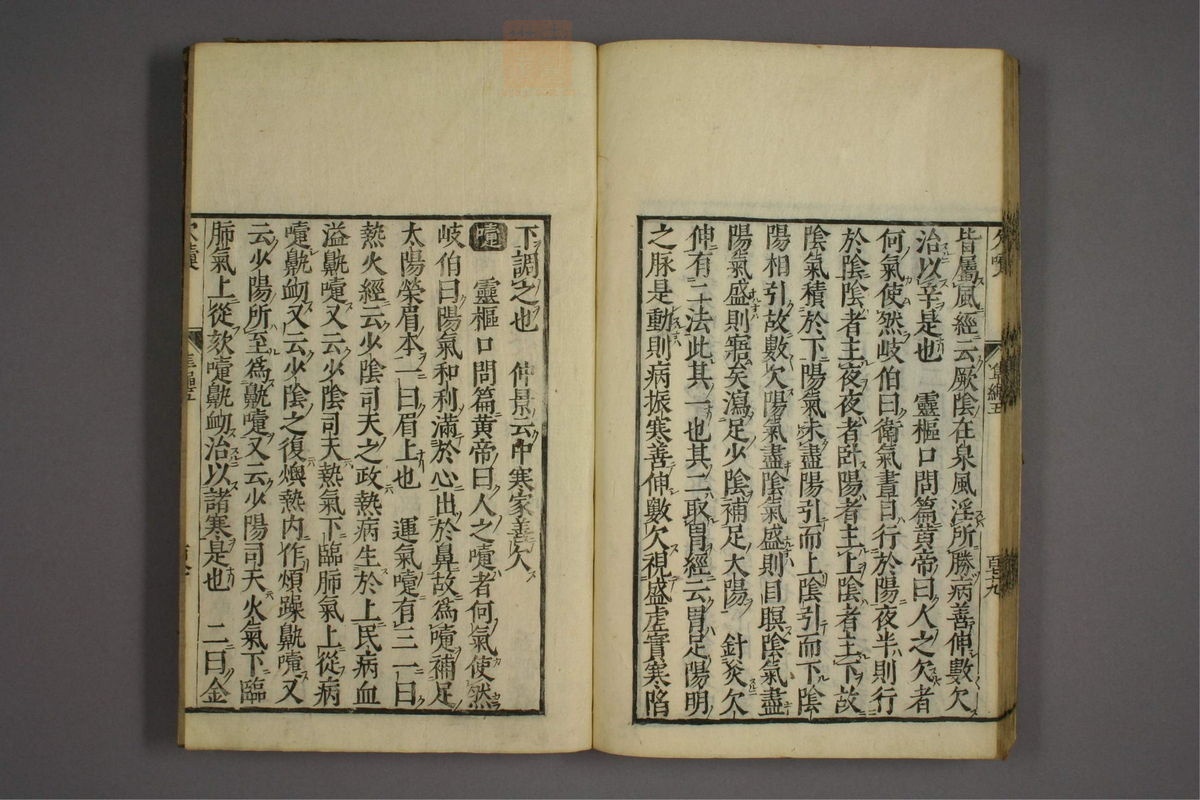 皆屬風經云厥陰在泉風淫所勝病善伸數欠
治以辛是也　靈樞口問篇黃帝曰人之欠者
何氣使然岐伯曰衛氣晝日行於陽夜半則行
於陰陰者主夜夜者卧陽者主上陰者主下故
陰氣積於下陽氣未盡陽引而上陰引而下陰
陽相引故數欠陽氣盡陰氣盛則目瞑陰氣盡
陽氣盛則寤矣瀉足少陰補足太陽　針灸欠
伸有二法此其一也其二取胃經云胃足陽明
之脉是動則病振寒善伸數欠視盛虛實寒陷
下調之也　仲景云中寒家善欠
嚔　靈樞口問篇黃帝曰人之嚔者何氣使然
岐伯曰陽氣和利滿於心出於鼻故爲嚔補足
太陽榮眉本一曰眉上也　運氣嚔有三一曰
熱火經云少陰司天之政熱病生於上民病血
溢鼽嚔又云少陰司天熱氣下臨肺氣上從病
嚔鼽衂又云少陰之復燠熱內作煩躁鼽嚔又
云少陽所至爲鼽嚔又云少陽司天火氣下臨
肺氣上從欬嚔鼽衂治以諸寒是也　二曰金